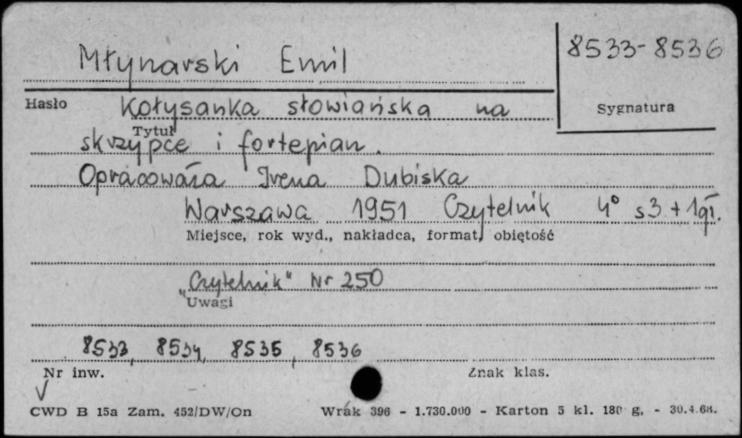 Młynarski Emil
8533-8536
Hasło
Sygnatura
Kołysanka słowiańska na
Tytuł
skrzypce i fortepian.
Opracowała Irena Dubiska
Warszawa 1951 Czytelnik 4° s3 + 1gł.
Miejsce, rok wyd., nakładca, format, objętość
"Czytelnik" Nr 250
Uwagi
8533, 8534, 8535, 8536
Nr inw.
Znak klas.
CWD B 15a Zam. 452/DW/On
Wrak 396 - 1.730.000 - Karton 5 kl. 180 g. - 30.4.68.